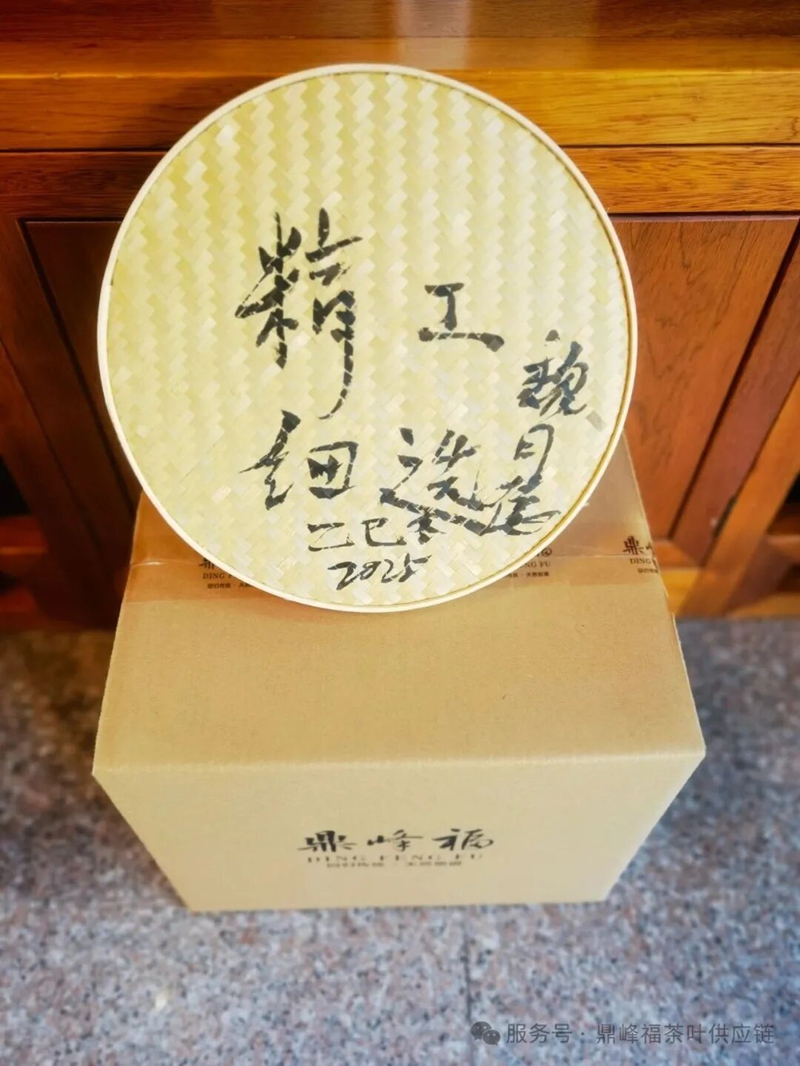 精工
细选
魏月
二巳冬
2025
鼎峰
DING FU
鼎峰福
DING FENG FU
服务号：鼎峰福茶叶供应链